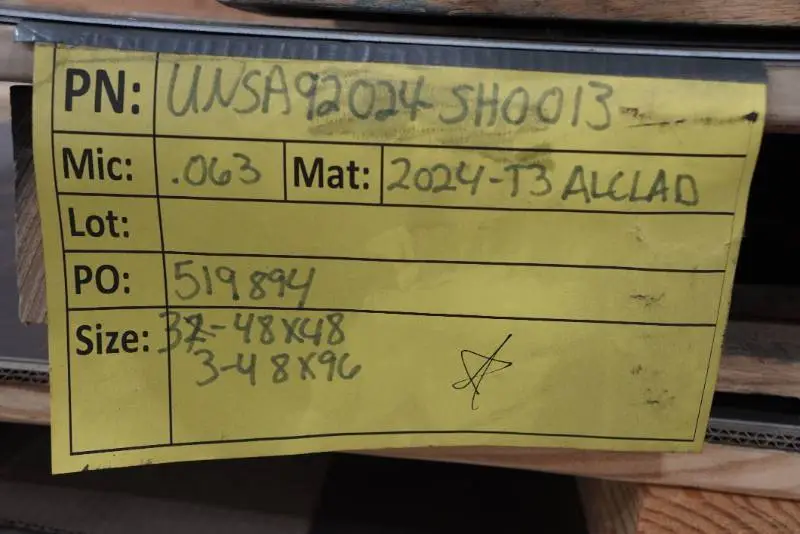 PN: UNSA92024-SH0013
Mic: .063 Mat: 2024-T3 ALCLAD
Lot:
PO: 519894
Size: 32-48X48
3-48X96